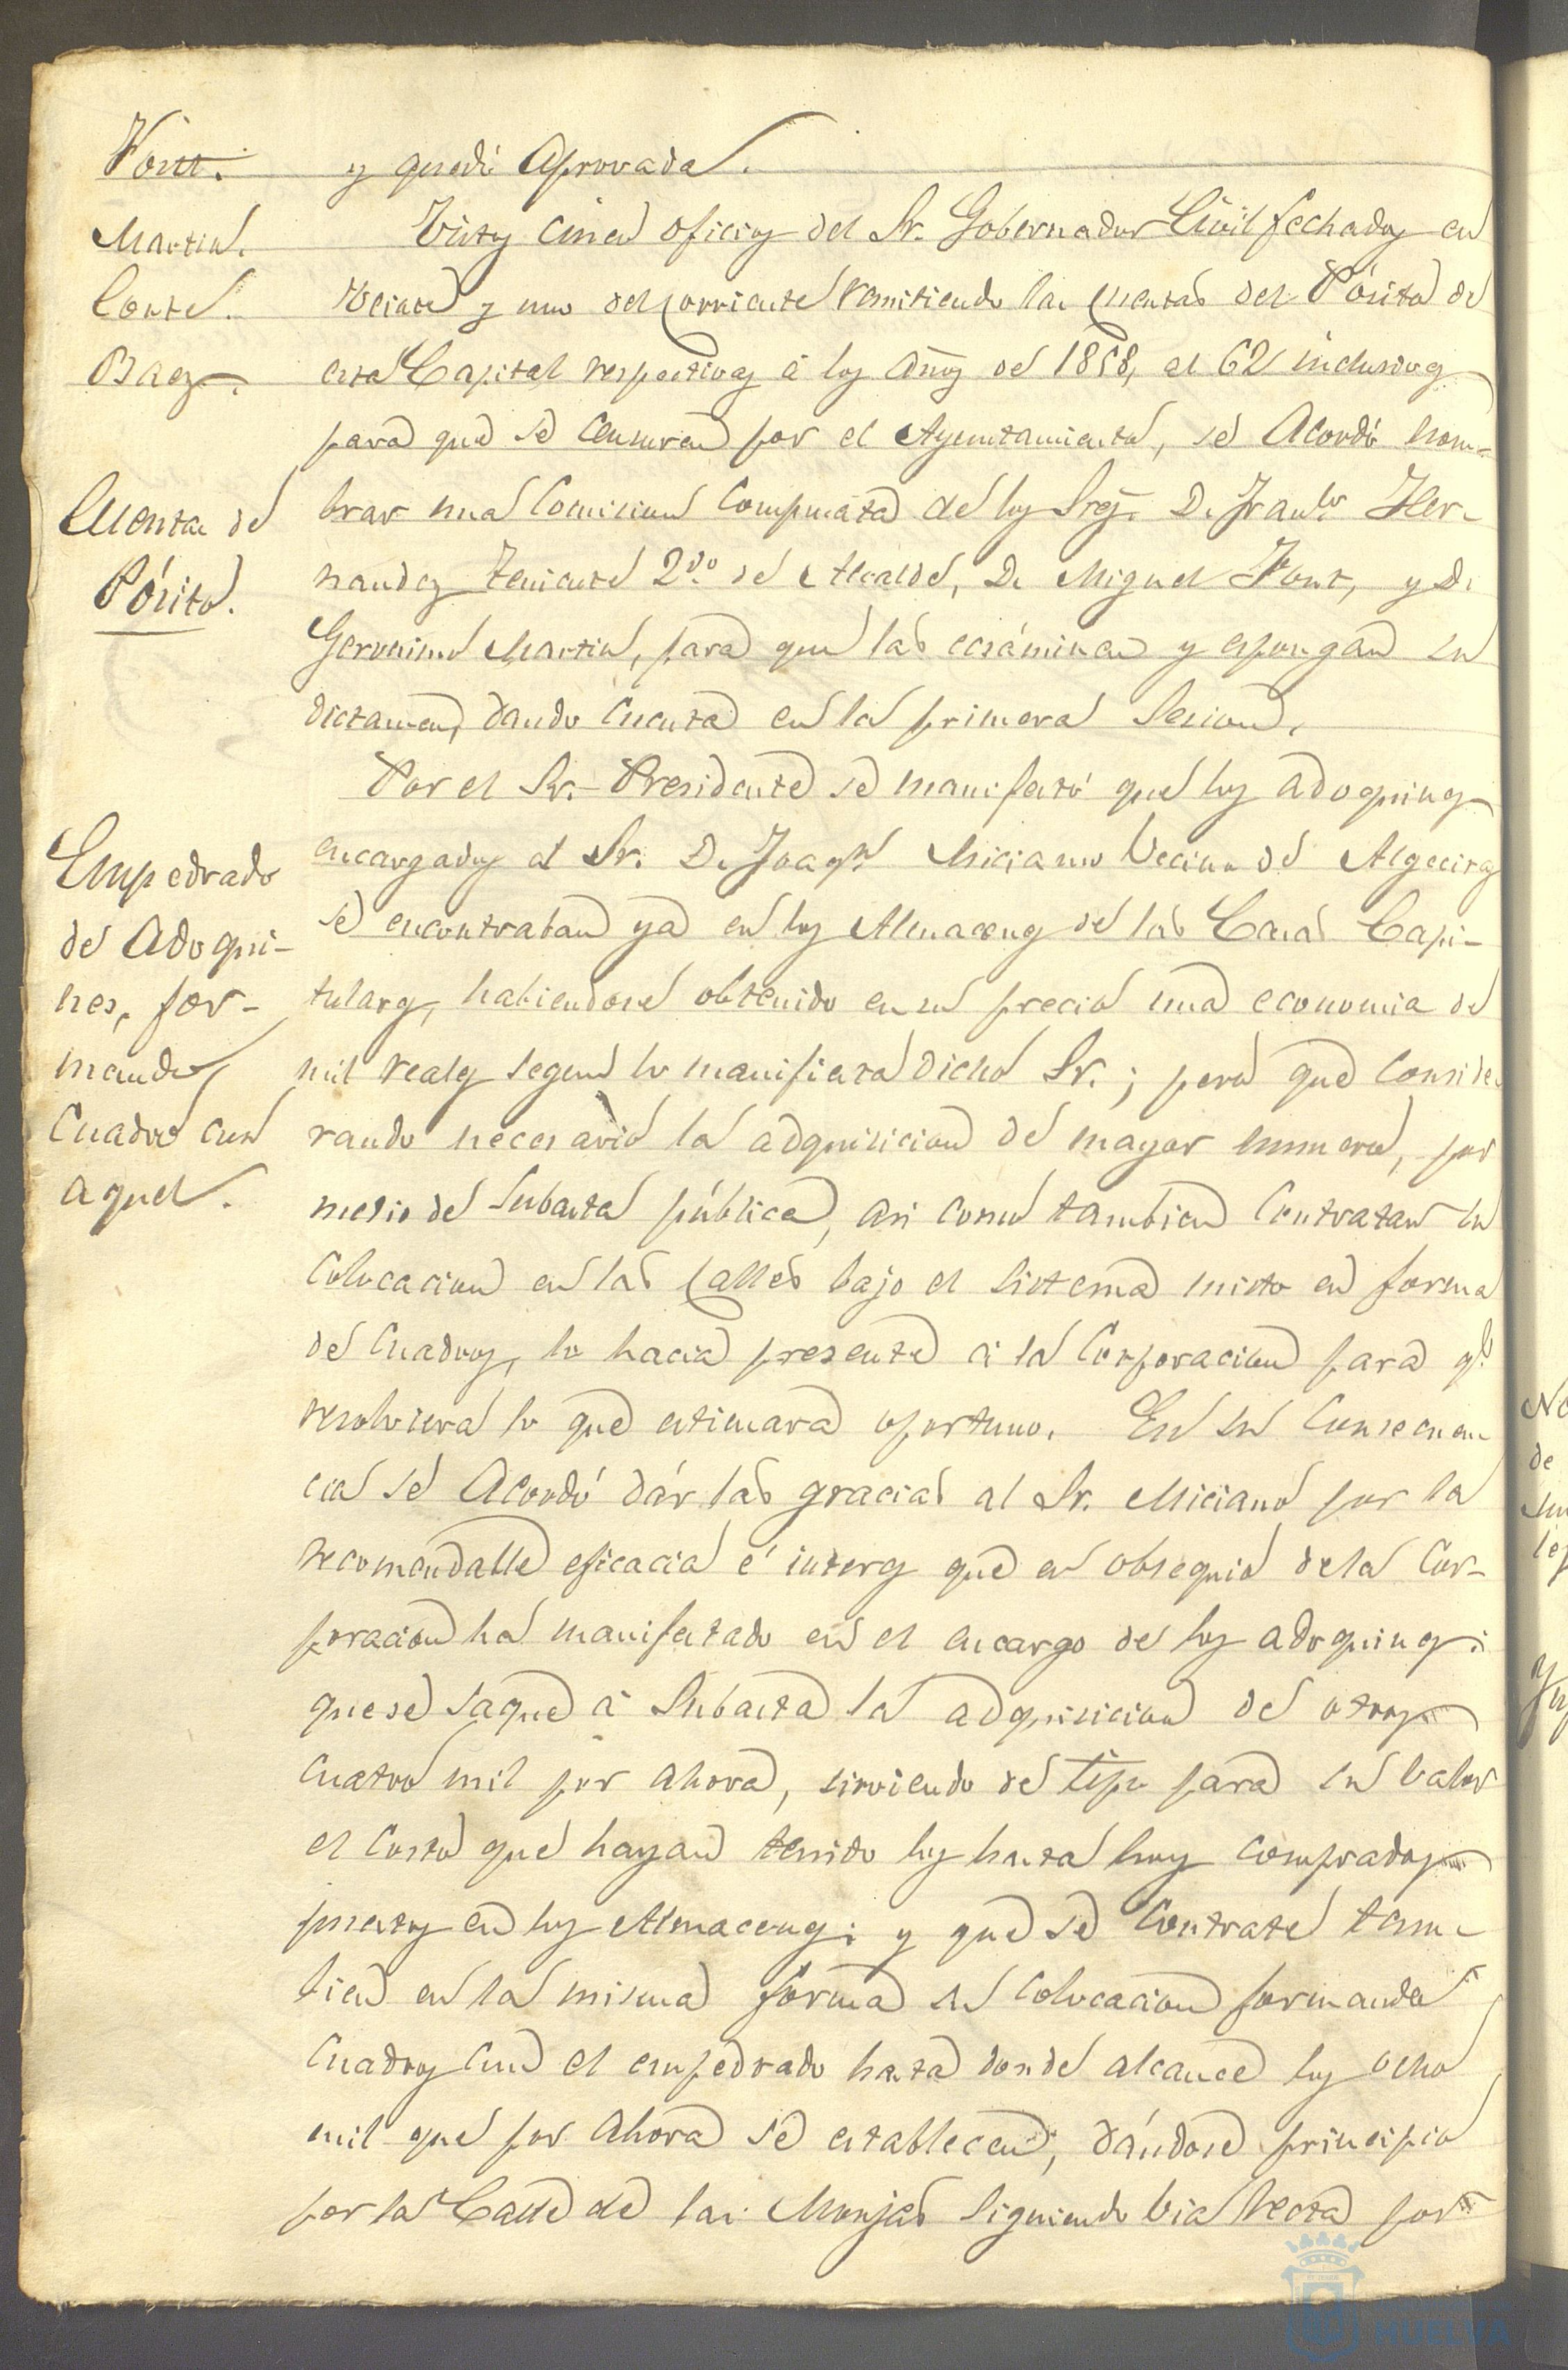 Font.
Martin.
Conte.
Baez.
Cuenta de
Pósito.
Empedrado
de Adoqui-
nes, for-
mando
Cuadro con
aquel.
y quedó Aprovada.
Vistos cinco oficios del Sr. Gobernador Civil fechados en
veinte y uno del corriente remitiendo las cuentas del Pósito de
esta Capital respectivas á los años de 1858, al 62 inclusives
para que se censuren por el Ayuntamiento, se Acordó nom-
brar una Comision compuesta de los Sres. D. Franco. Her-
nandez teniente 2do. de Alcalde, D. Miguel Font, y D.
Geronimo Martin, para que las ecsáminen y espongan su
dictamen, dando cuenta en la primera Sesion.
Por el Sr. Presidente se manifestó que los adoquines
encargados al Sr. D. Joaqn. Miciano Vecino de Algeciras
se encontraban ya en los Almacenes de las Casas Capi-
tulares, habiendose obtenido en su precio una economia de
mil reales segun lo manifiesta dicho Sr.; pero que conside-
rando necesario la adquisicion de mayor numero, por
medio de Subasta pública, asi como tambien contratar su
colocacion en las calles bajo el sistema misto en forma
de Cuadros, lo hacia presente á la Corporacion para qe.
resolviera lo que estimara oportuno. En su consecuen-
cia se Acordó dár las gracias al Sr. Miciano por la
recomendable eficacia é interes que en obsequio de la Cor-
poracion ha manifestado en el encargo de los adoquines:
que se saque á Subasta la adquisicion de otros
cuatro mil por ahora, sirviendo de tipo para su valor
el costo que hayan tenido los hasta hoy comprados
puestos en los Almacenes; y que se contrate tam-
bien en la misma forma su colocacion formando
cuadros con el empedrado hasta donde alcance los ocho
mil que por ahora se establecen, dándose principio
por la Calle de las Monjas siguiendo via recta por
HUELVA